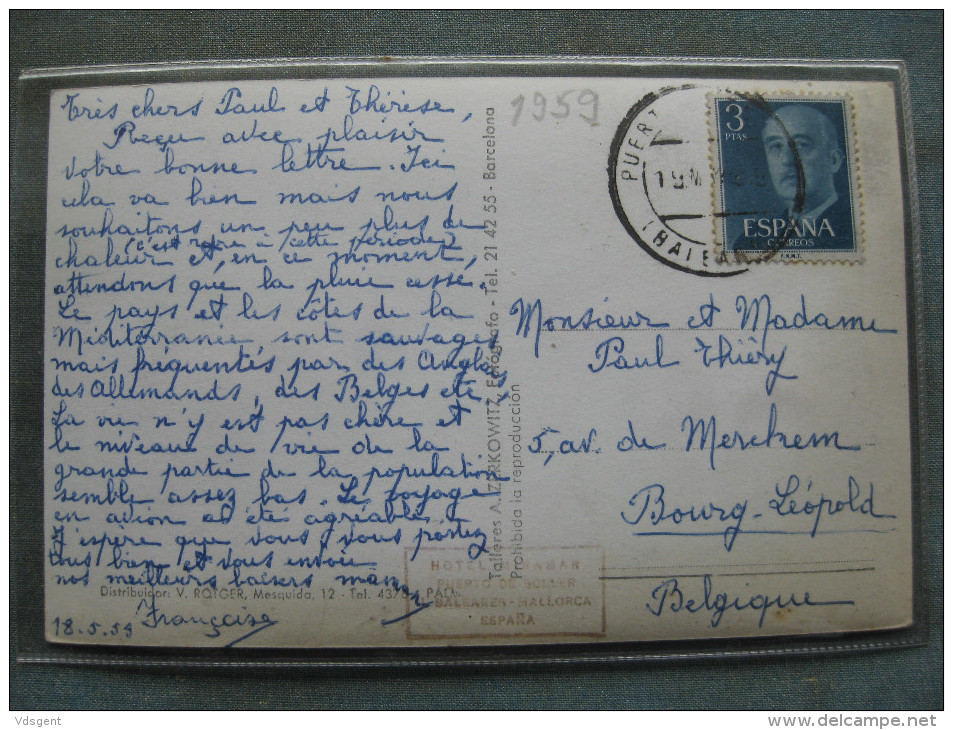 Très chers Paul et Thérèse,
Reçu avec plaisir
votre bonne lettre. Ici
cela va bien mais nous
souhaitons un peu plus de
(c'est rare à cette période)
chaleur et, en ce moment,
attendons que la pluie cesse.
Le pays et les côtes de la
Méditerranée sont sauvages
mais fréquentés par des Anglais
des Allemands, des Belges etc.
La vie n'y est pas chère et
le niveau de vie de la
grande partie de la population
semble assez bas. Le voyage
en avion a été agréable.
J'espère que vous vous portez
tous bien et vous envoie
nos meilleurs baisers
Françoise
18.5.59
Distribuidor: V. ROTGER, Mesquida, 12 - Tel. 4378
Talleres A. ZERKOWITZ, Fotógrafo - Tel. 21 42 55 - Barcelona
Prohibida la reproducción
1959
PUERT
(BALEAR
3
PTAS
ESPAÑA
CORREOS
F.N.M.T.
Monsieur et Madame
Paul Thiéry
5, av. de Merckem
Bourg-Léopold
Belgique
HOTEL MIRAMAR
PUERTO DE SOLLER
BALEARES-MALLORCA
ESPAÑA
Vdsgent
http://www.delcampe.net